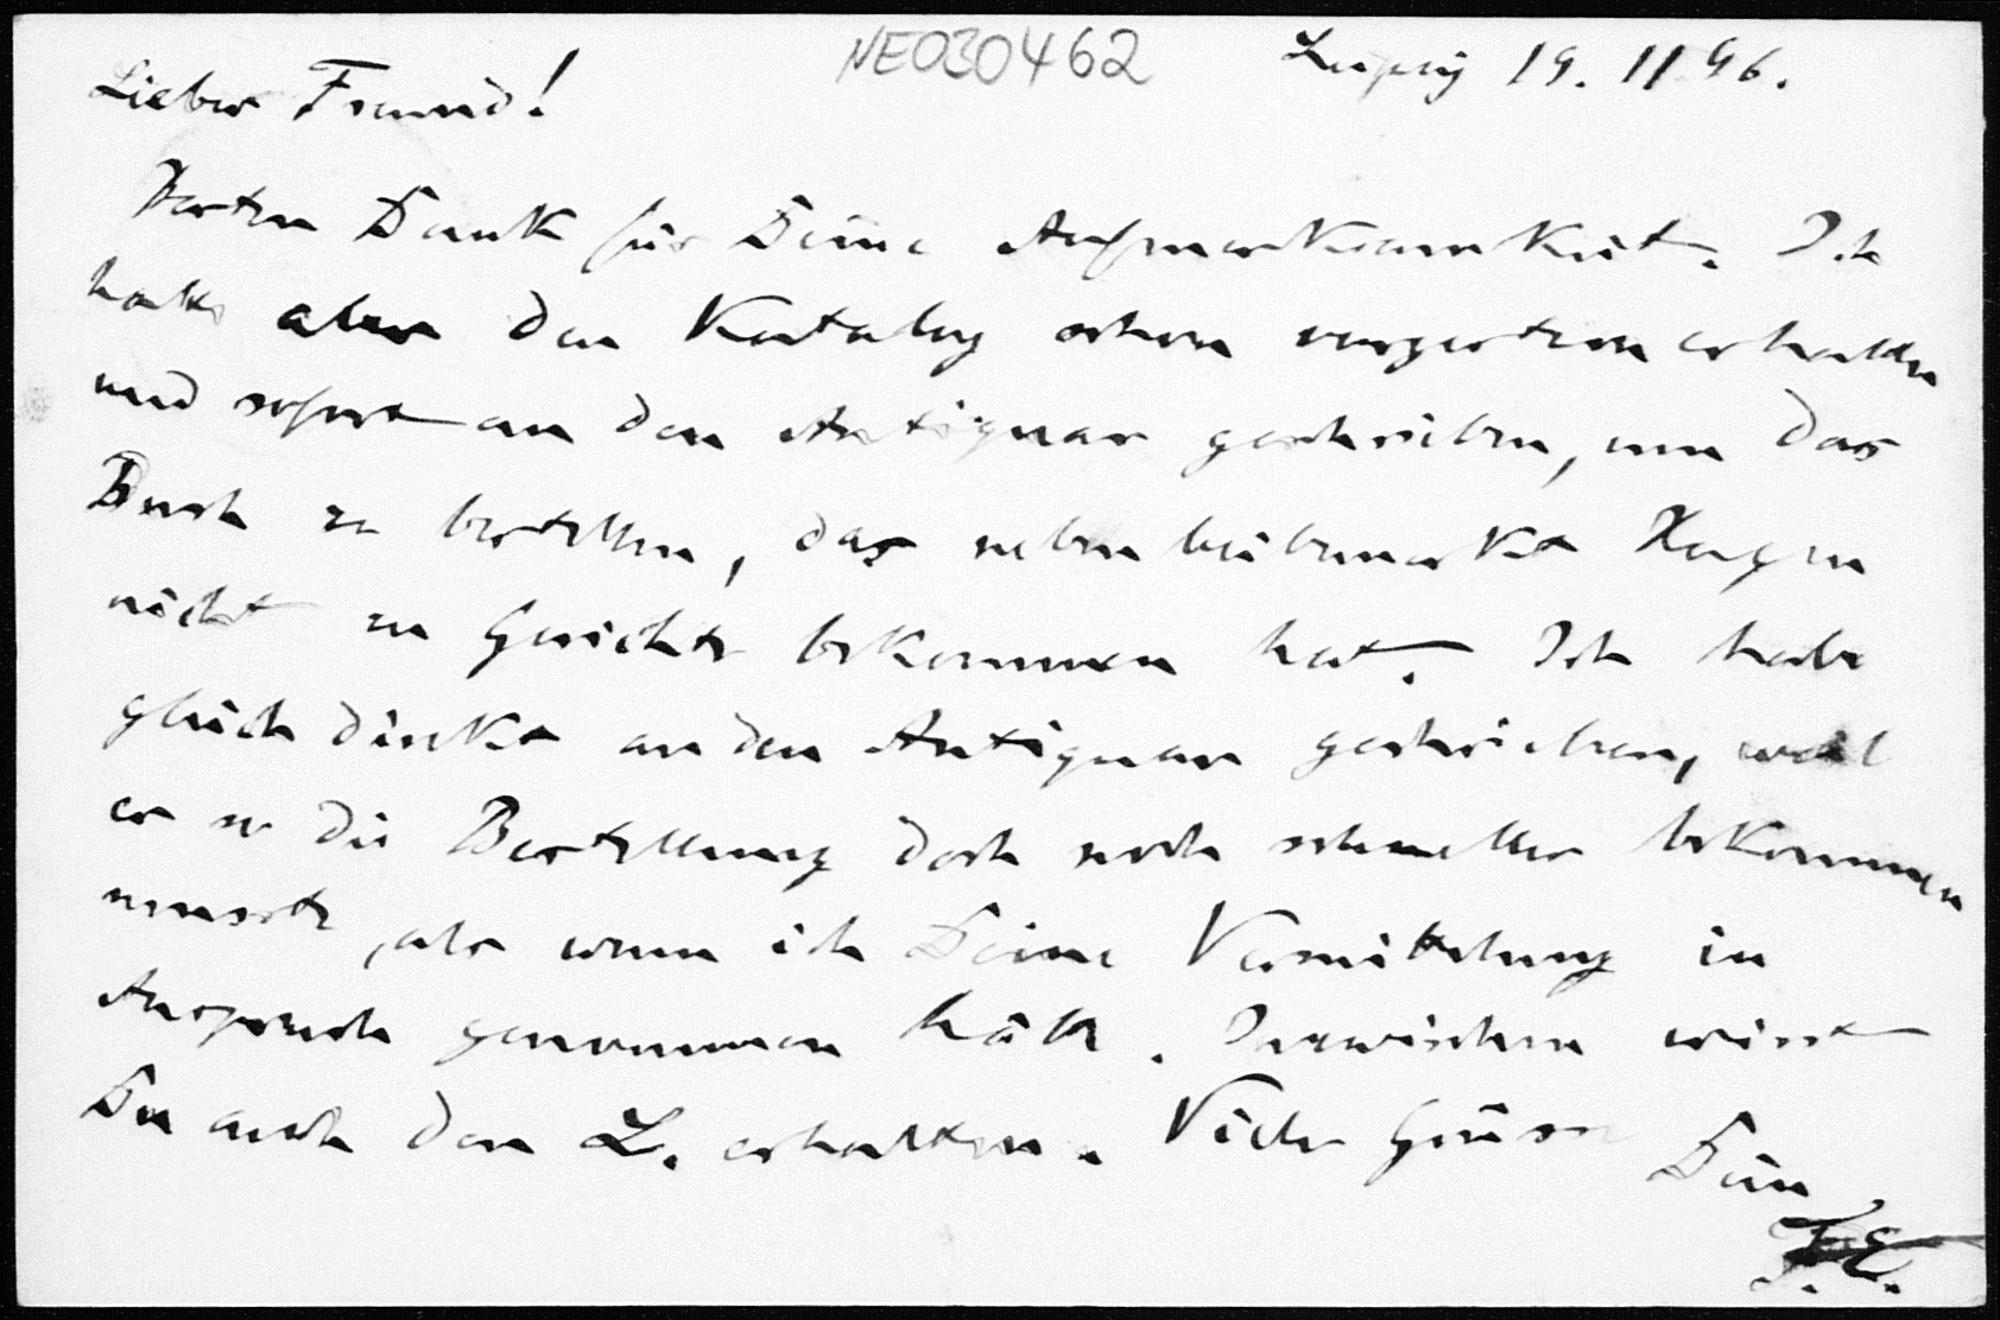 NE030462
Leipzig 19. 11 96.
Lieber Freund!
Besten Dank für Deine Aufmerksamkeit. Ich
hatte aber den Katalog schon vorgestern erhalten
und sofort an den Antiquar geschrieben, um das
Buch zu bestellen, das nebenbeibemerkt Hagen
nicht zu Gesichte bekommen hat. Ich habe
gleich direkt an den Antiquar geschrieben, weil
er so die Bestellung doch noch schneller bekommen
musste, als wenn ich Deine Vermittelung in
Anspruch genommen hätte. Inzwischen wirst
Du auch den L. erhalten. Viele Grüsse Dein
F. E.